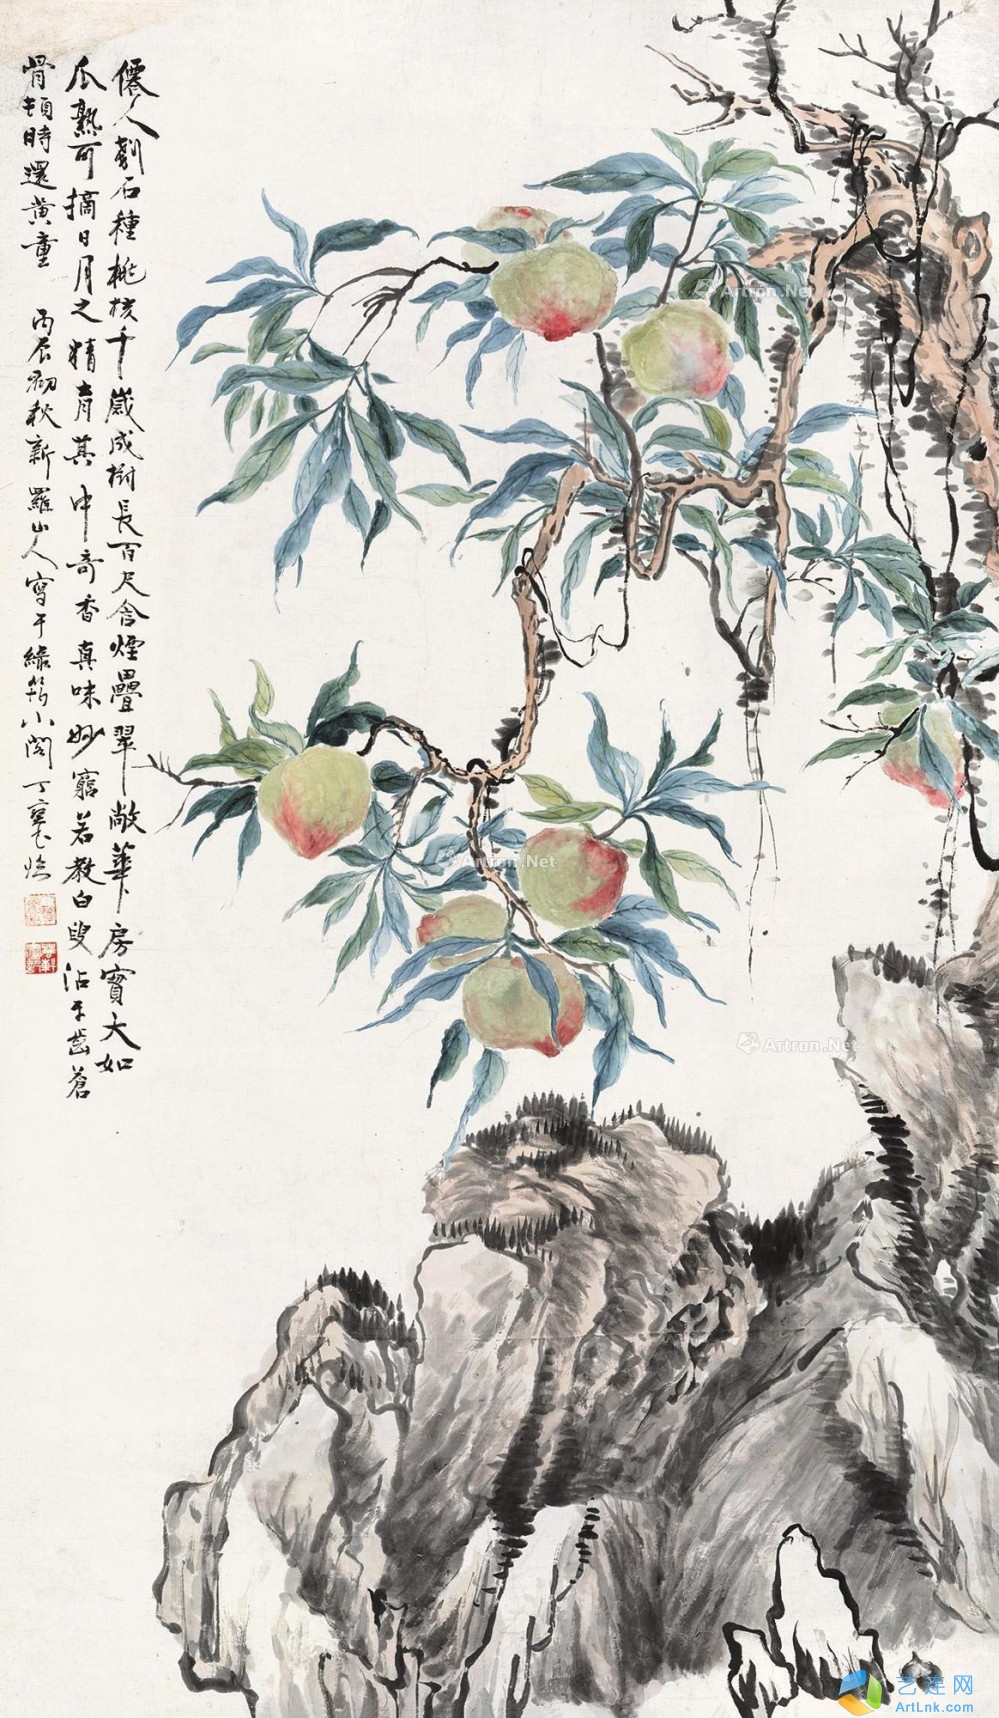 僊人劚石種桃核千歲成樹長百尺含煙疊翠敞華房實大如
瓜熟可摘日月之精孕其中奇香真味妙窮若教白叟沾牙齒蒼
骨頓時還黄童 丙辰初秋新羅山人寫于綠筠小閣丁寶書臨
Artron.Net
Artron.Net
Artron.Net
艺连网
ArtLnk.com